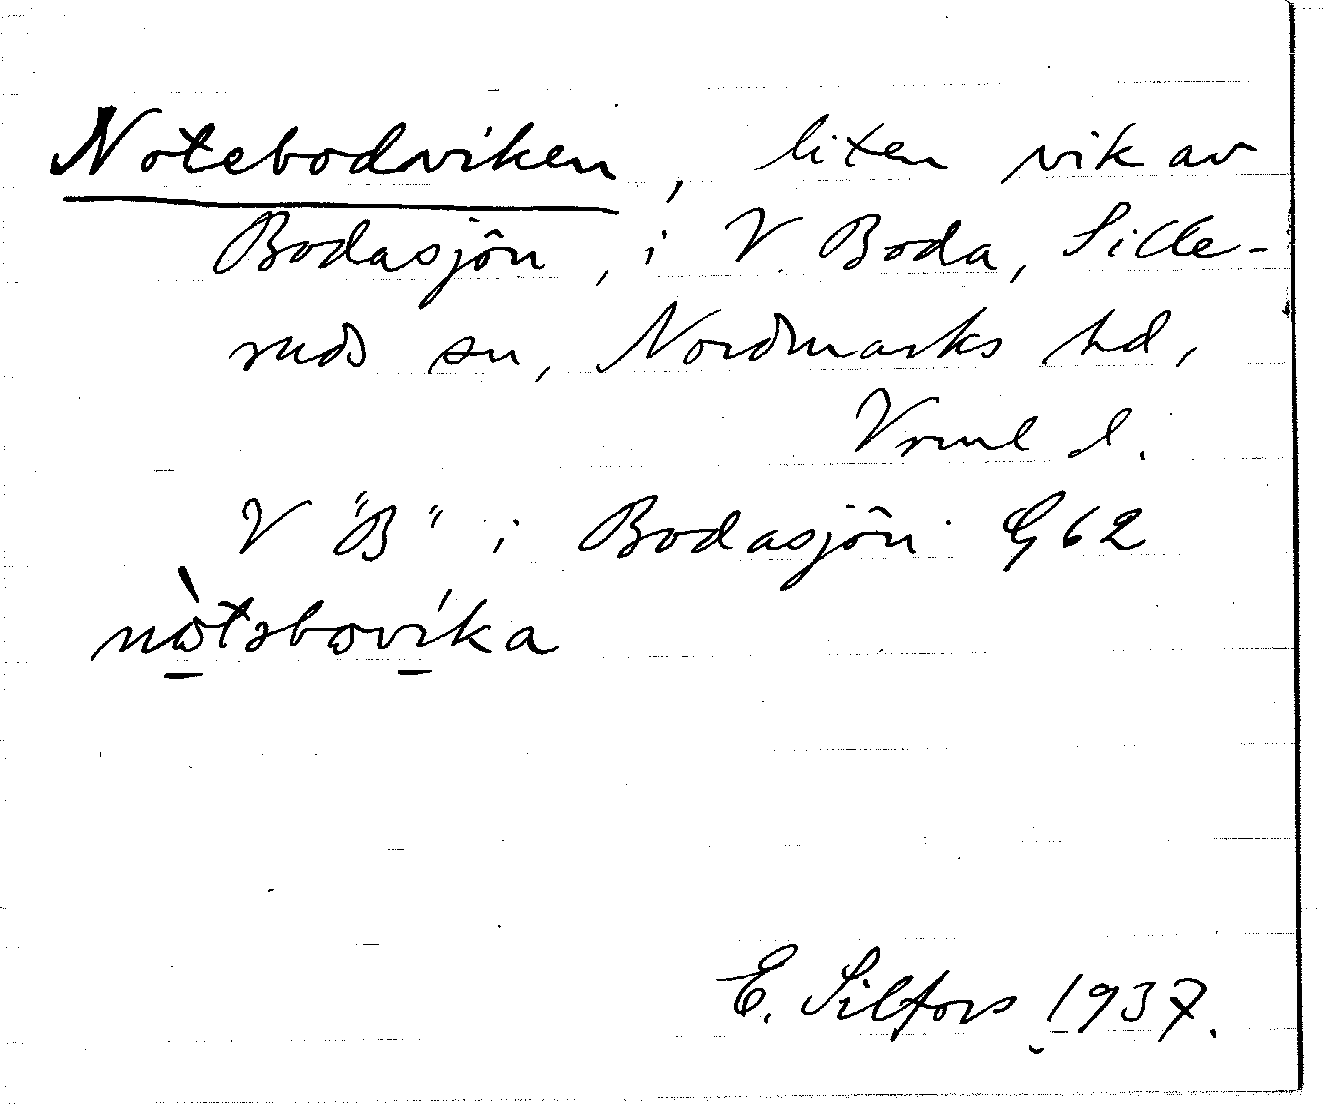 Notebodviken, liten vik av
Bodasjön, i V. Boda, Sille-
ruds sn, Nordmarks hd,
Vrml l.
V "B" i Bodasjön G62
nòtəbovíka
E. Silfors 1937.